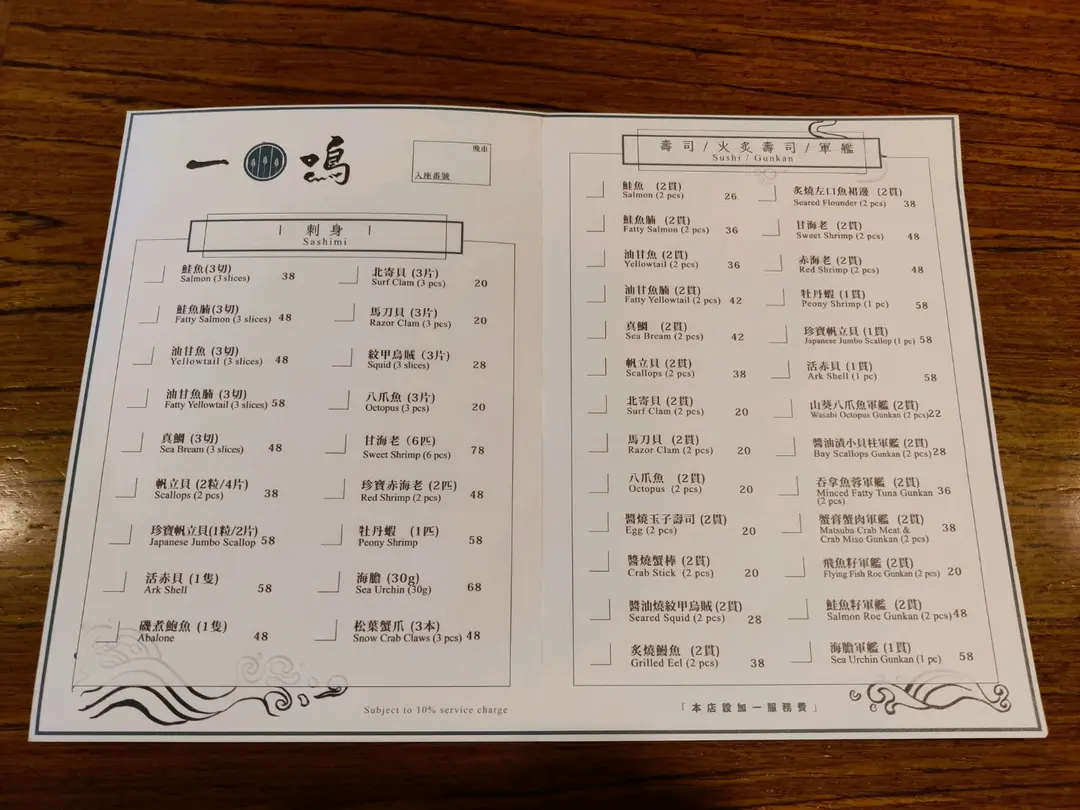 一 鳴
晚市
入座番號
刺身
Sashimi
鮭魚(3切)
Salmon (3 slices) 38
鮭魚腩(3切)
Fatty Salmon (3 slices) 48
油甘魚 (3切)
Yellowtail (3 slices) 48
油甘魚腩 (3切)
Fatty Yellowtail (3 slices) 58
真鯛 (3切)
Sea Bream (3 slices) 48
帆立貝 (2粒/4片)
Scallops (2 pcs) 38
珍寶帆立貝(1粒/2片)
Japanese Jumbo Scallop 58
活赤貝 (1隻)
Ark Shell 58
磯煮鮑魚 (1隻)
Abalone 48
北寄貝 (3片)
Surf Clam (3 pcs) 20
馬刀貝 (3片)
Razor Clam (3 pcs) 20
紋甲烏賊 (3片)
Squid (3 slices) 28
八爪魚 (3片)
Octopus (3 pcs) 20
甘海老 (6匹)
Sweet Shrimp (6 pcs) 78
珍寶赤海老 (2匹)
Red Shrimp (2 pcs) 48
牡丹蝦 (1匹)
Peony Shrimp 58
海膽 (30g)
Sea Urchin (30g) 68
松葉蟹爪 (3本)
Snow Crab Claws (3 pcs) 48
Subject to 10% service charge
壽司/火炙壽司/軍艦
Sushi / Gunkan
鮭魚 (2貫)
Salmon (2 pcs) 26
鮭魚腩 (2貫)
Fatty Salmon (2 pcs) 36
油甘魚 (2貫)
Yellowtail (2 pcs) 36
油甘魚腩 (2貫)
Fatty Yellowtail (2 pcs) 42
真鯛 (2貫)
Sea Bream (2 pcs) 42
帆立貝 (2貫)
Scallops (2 pcs) 38
北寄貝 (2貫)
Surf Clam (2 pcs) 20
馬刀貝 (2貫)
Razor Clam (2 pcs) 20
八爪魚 (2貫)
Octopus (2 pcs) 20
醬燒玉子壽司 (2貫)
Egg (2 pcs) 20
醬燒蟹棒 (2貫)
Crab Stick (2 pcs) 20
醬油燒紋甲烏賊(2貫)
Seared Squid (2 pcs) 28
炙燒鰻魚 (2貫)
Grilled Eel (2 pcs) 38
炙燒左口魚裙邊 (2貫)
Seared Flounder (2 pcs) 38
甘海老 (2貫)
Sweet Shrimp (2 pcs) 48
赤海老 (2貫)
Red Shrimp (2 pcs) 48
牡丹蝦 (1貫)
Peony Shrimp (1 pc) 58
珍寶帆立貝 (1貫)
Japanese Jumbo Scallop (1 pc) 58
活赤貝 (1貫)
Ark Shell (1 pc) 58
山葵八爪魚軍艦 (2貫)
Wasabi Octopus Gunkan (2 pcs) 22
醬油漬小貝柱軍艦 (2貫)
Bay Scallops Gunkan (2 pcs) 28
吞拿魚蓉軍艦 (2貫)
Minced Fatty Tuna Gunkan 36
(2 pcs)
蟹膏蟹肉軍艦 (2貫)
Matsuba Crab Meat & 38
Crab Miso Gunkan (2 pcs)
飛魚籽軍艦 (2貫)
Flying Fish Roe Gunkan (2 pcs) 20
鮭魚籽軍艦 (2貫)
Salmon Roe Gunkan (2 pcs) 48
海膽軍艦 (1貫)
Sea Urchin Gunkan (1 pc) 58
「本店設加一服務費」